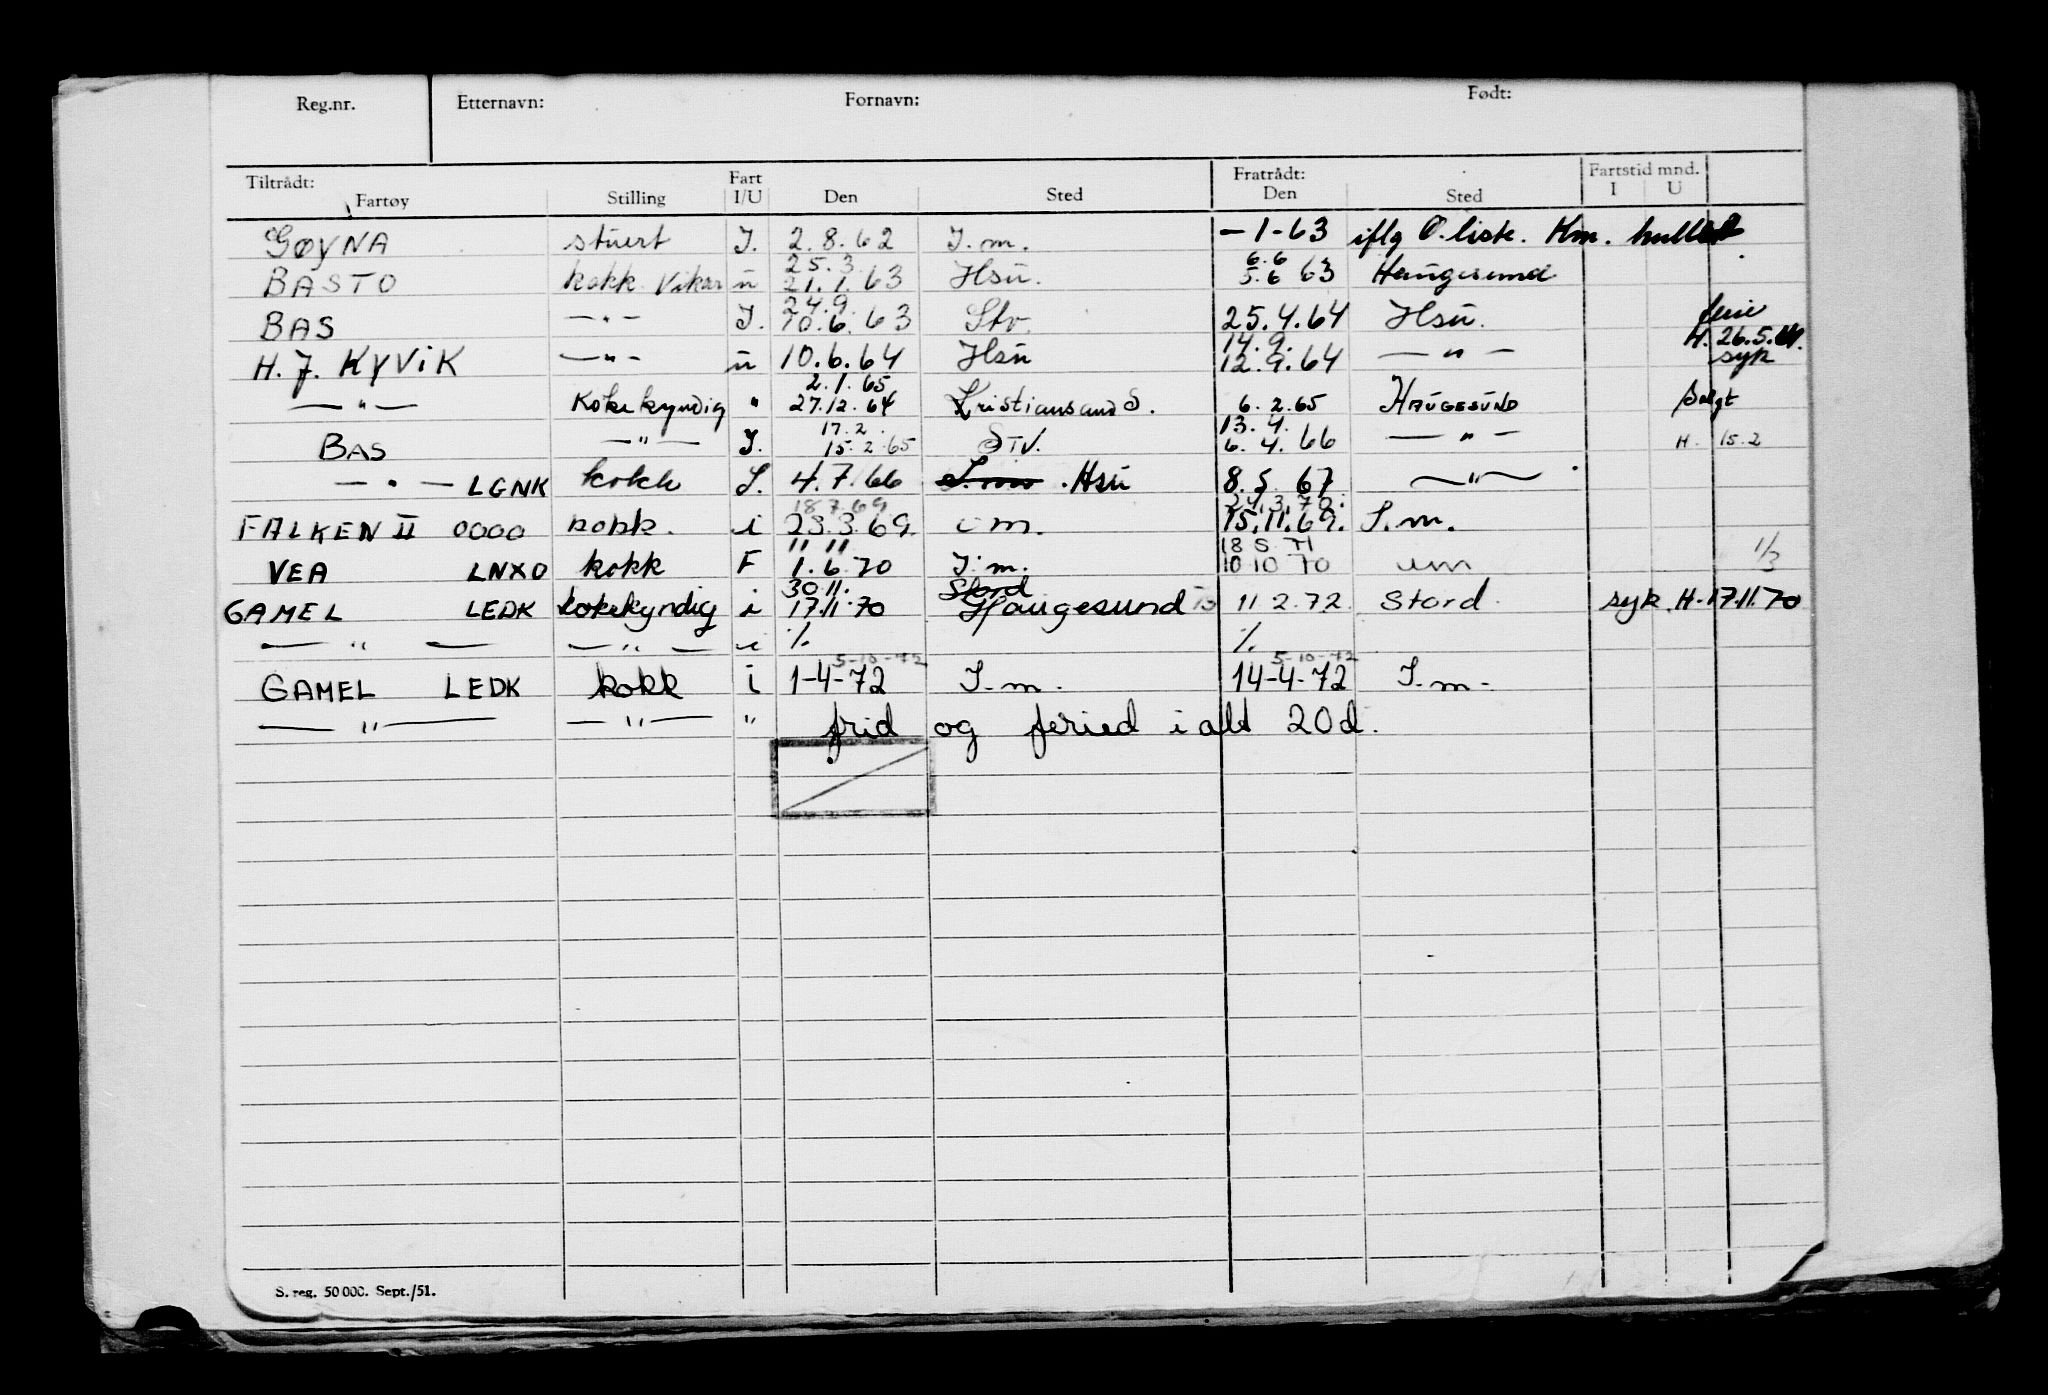 Reg.nr. Etternavn: Fornavn: Født:
Tiltrådt: Fart Fratrådt: Fartstid mnd.
Fartøy Stilling I/U Den Sted Den Sted I U
GØYNA stuert I. 2.8.62 I.m. -1-63 iflg O.liste. Km. hullet
25.3 6.6
BASTO kokk Vikar u 21.1.63 Hsu. 5.6 63 Haugesund
24.9. ferie
BAS —"— I. 10.6.63 Stv. 25.4.64 Hsu. H. 26.5.64.
14.9. syk
H. J. KYVIK —"— u 10.6.64 Hsu 12.9.64 —"—
2.1.65
—"— Kokekyndig " 27.12.64 Kristiansand S. 6.2.65 HAUGESUND Solgt
17.2. 13.4.
BAS —"— I. 15.2.65 STV. 6.4.66 —"— H. 15.2
—"— LGNK kokk I. 4.7.66 I.m. Hsu 8.5.67 —"—
18 7 69 24.3.70.
FALKEN II OOOO kokk. i 23.3.69. im. 15.11.69. I.m.
" " 18 5 71
VEA LNXO kokk F 1.6.70 I.m. 10 10 70 um 1/3
30.11. Stord
GAMEL LEDK kokekyndig i 17.11.70 Haugesund 11 2.72. Stord. syk H. 17.11.70
—"— —"— i ·/. ·/.
5-10-72 5-10-72
GAMEL LEDK kokk i 1-4-72 I.m. 14-4-72 I.m.
—"— —"— " frid og feried i alt 20d.
S. reg. 50 000. Sept./51.